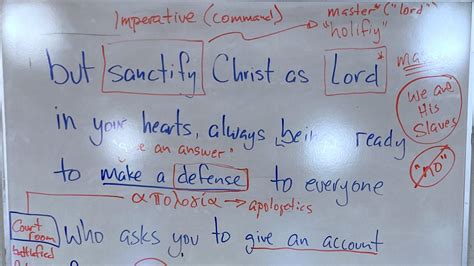 Imperative (command)
master" ("lord")
"holifiy"
but sanctify Christ as Lord*
We are
His
Slaves
in your hearts, always being ready
an answer"
"no"
to make a defense to everyone
απολογία → apologetics
Court
room
battlefied
Who asks you to give an account